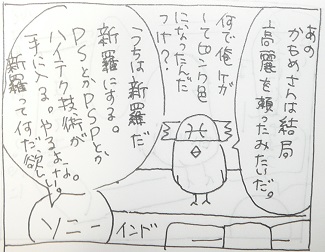 あの
かもめさんは結局
高麗を頼ったみたいだ。
何で俺
ンク色
になったんだ
っけ？
うちは新羅だ
新羅にする。
DSとかPSPとか
ハイテク技術が
手に入る。やるよな。
新羅って何だ欲しい。
ソニー
インド